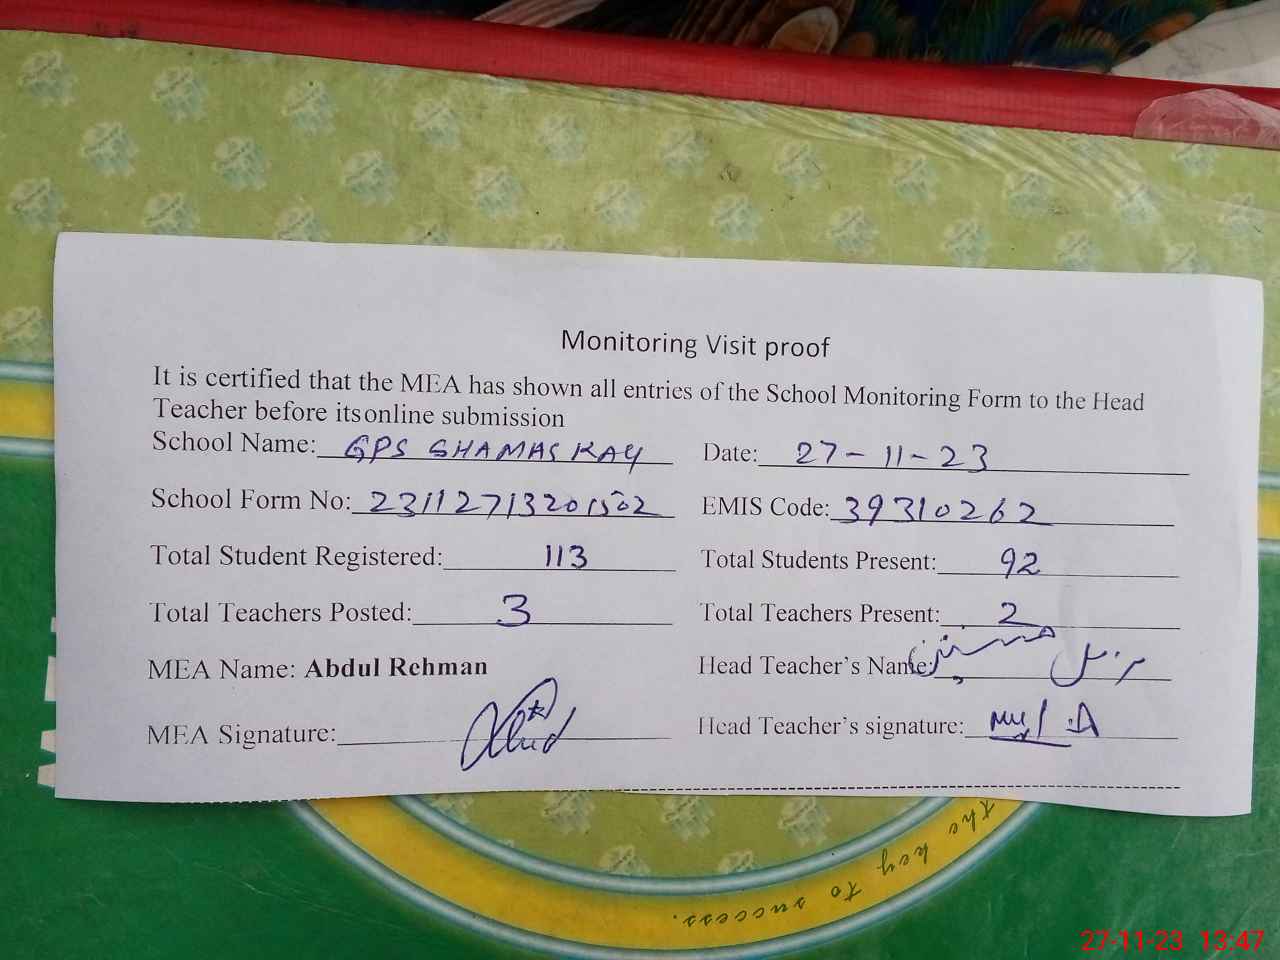 Monitoring Visit proof
It is certified that the MEA has shown all entries of the School Monitoring Form to the Head
Teacher before itsonline submission
School Name: GPS SHAMAS KAY Date: 27-11-23
School Form No: 23112713201502 EMIS Code: 39310262
Total Student Registered: 113 Total Students Present: 92
Total Teachers Posted: 3 Total Teachers Present: 2
MEA Name: Abdul Rehman Head Teacher's Name:
MEA Signature: Head Teacher's signature:
the key to success.
27-11-23 13:47